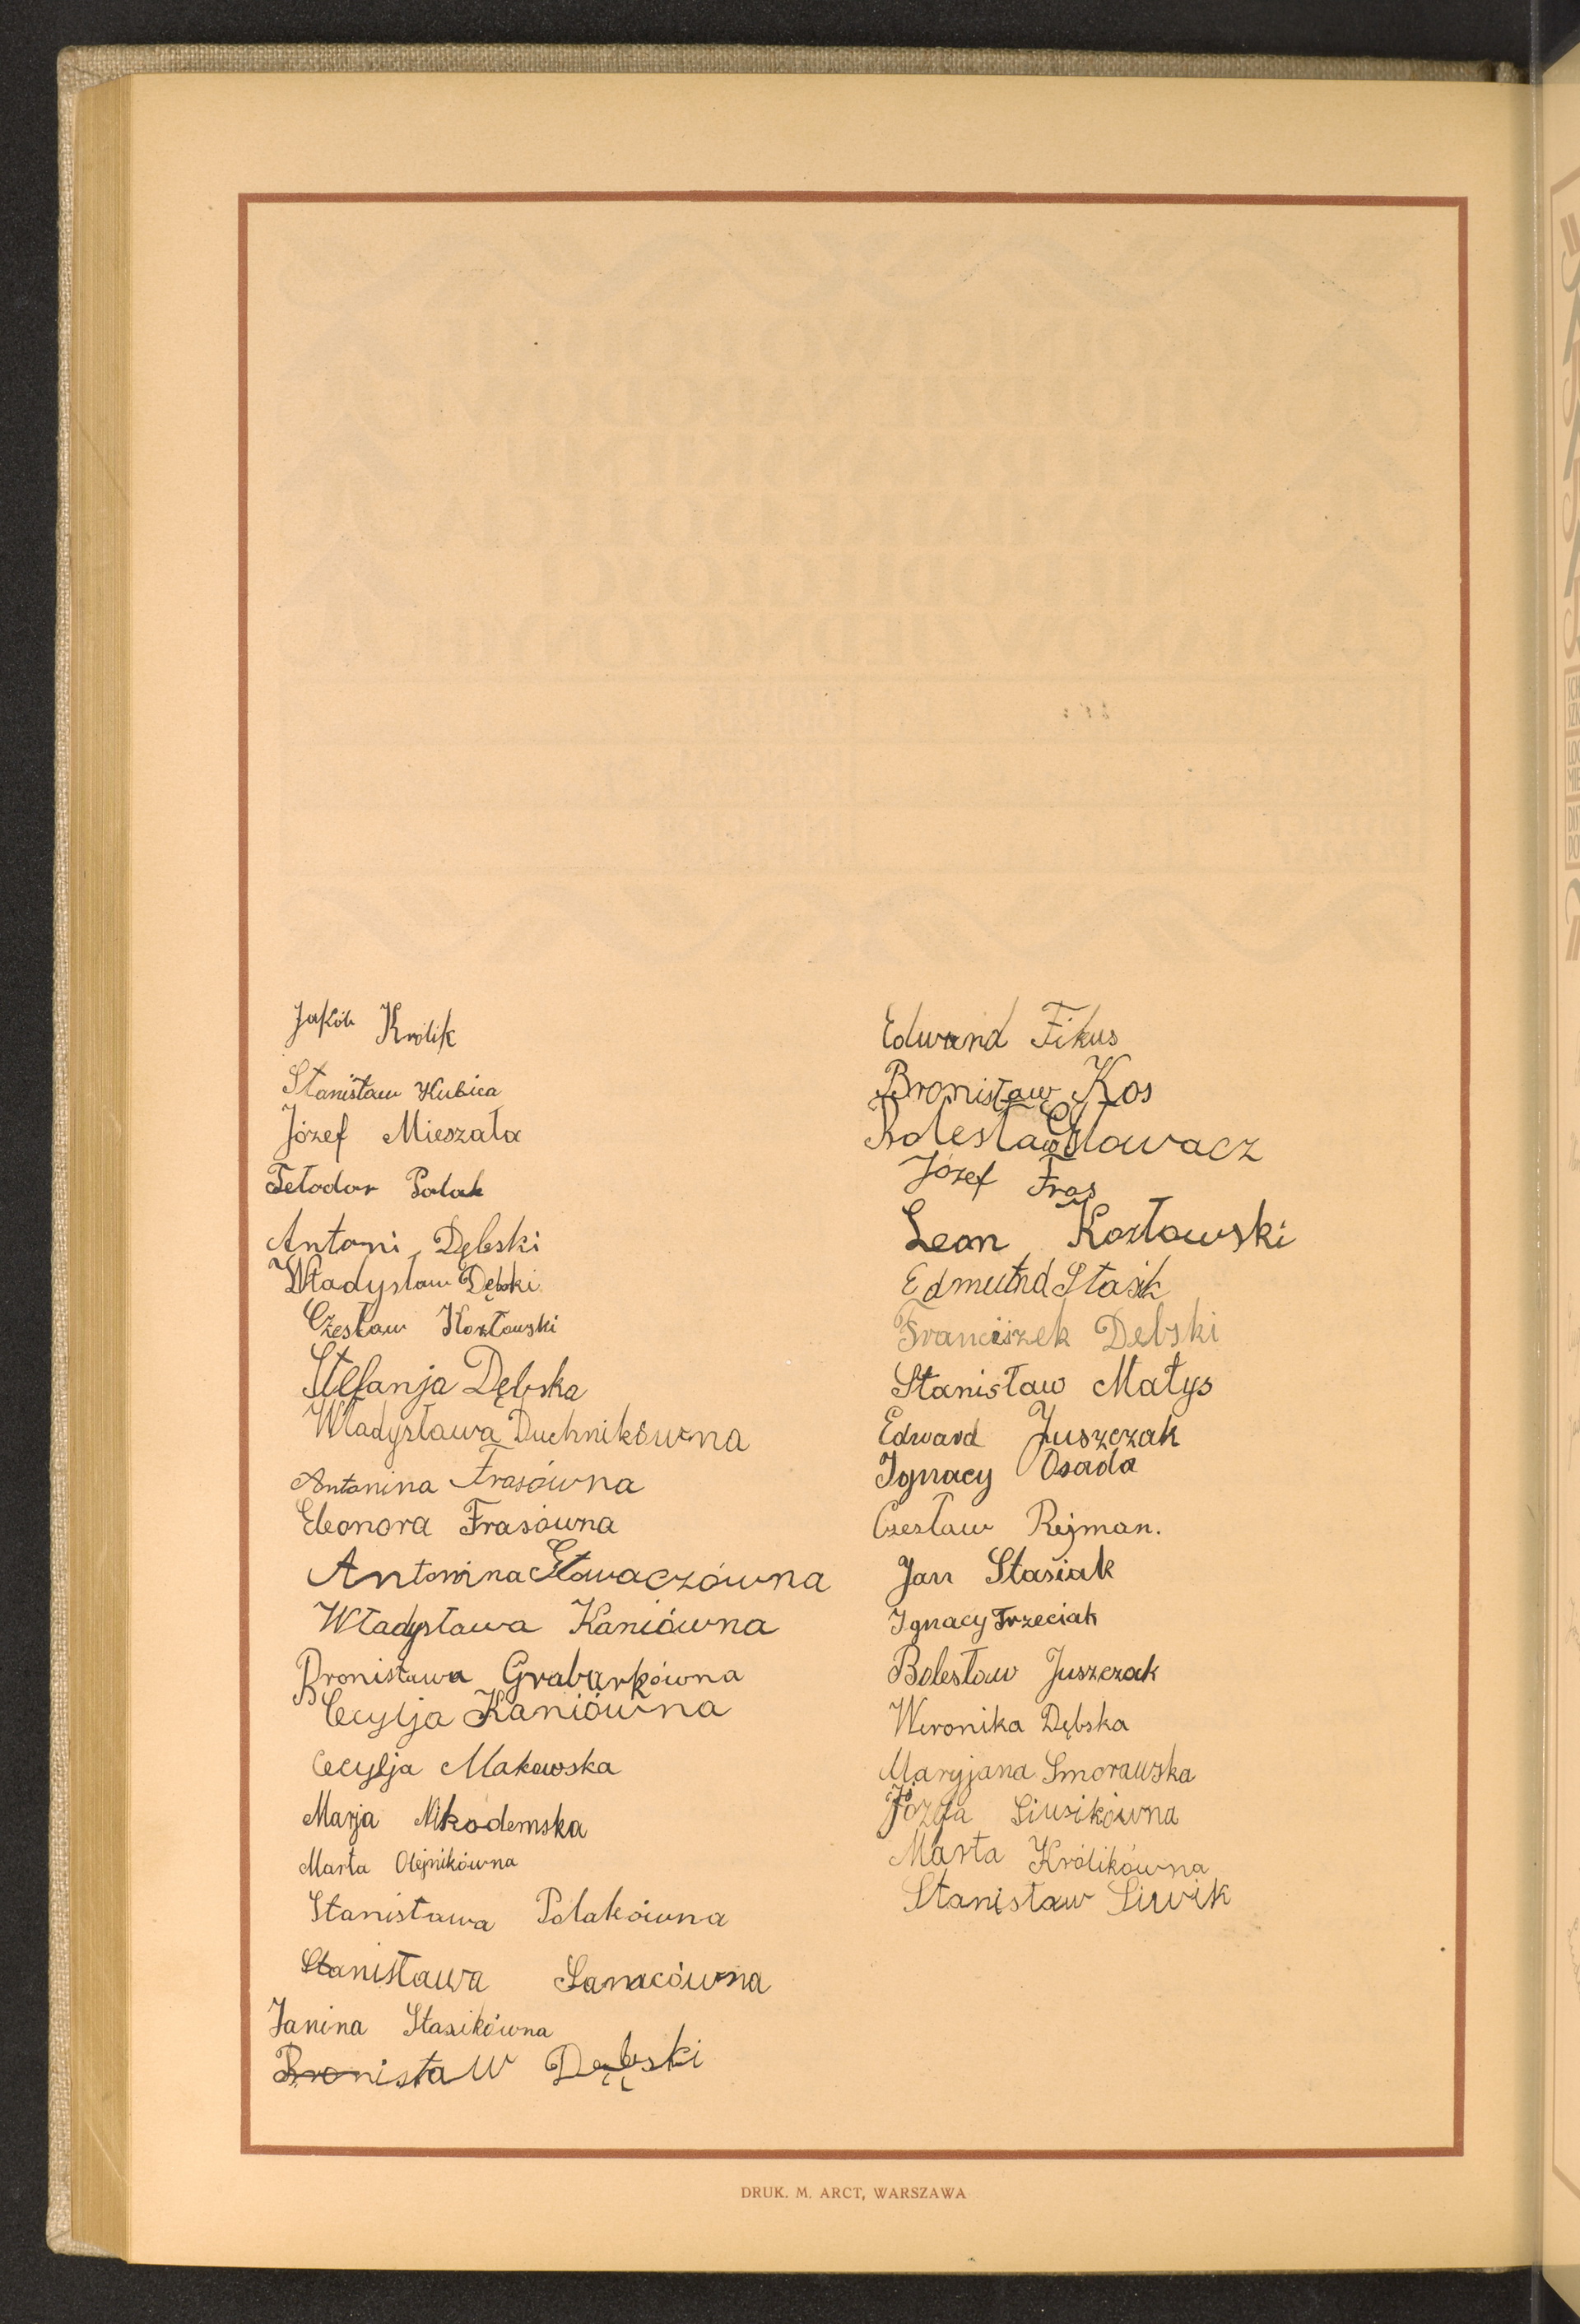 Jakób Królik
Stanisław Kubica
Józef Mieszała
Tełodor Polak
Antoni Dębski
Władysław Dębski
Czesław Kozłowski
Stefanja Dębska
Władysława Duchnikówna
Antonina Frasówna
Eleonora Frasówna
Antonina Głowaczówna
Władysława Kaniówna
Bronisława Grabarkówna
Cecylja Kaniówna
Cecylja Makowska
Marja Nikodemska
Marta Olejnikówna
Stanisława Polakówna
Stanisława Sanacówna
Janina Stasikówna
Bronisław Dębski
Edward Fikus
Bronisław Kos
Bolesław Głowacz
Józef Fras
Leon Kozłowski
Edmund Stasik
Franciszek Debski
Stanisław Małys
Edward Juszczak
Ignacy Osada
Czesław Rejman.
Jan Stasiak
Ignacy Trzeciak
Bolesław Juszczak
Weronika Dębska
Maryjana Smorawska
Józfa Siwikówna
Marta Królikówna
Stanisław Siwik
DRUK. M. ARCT, WARSZAWA